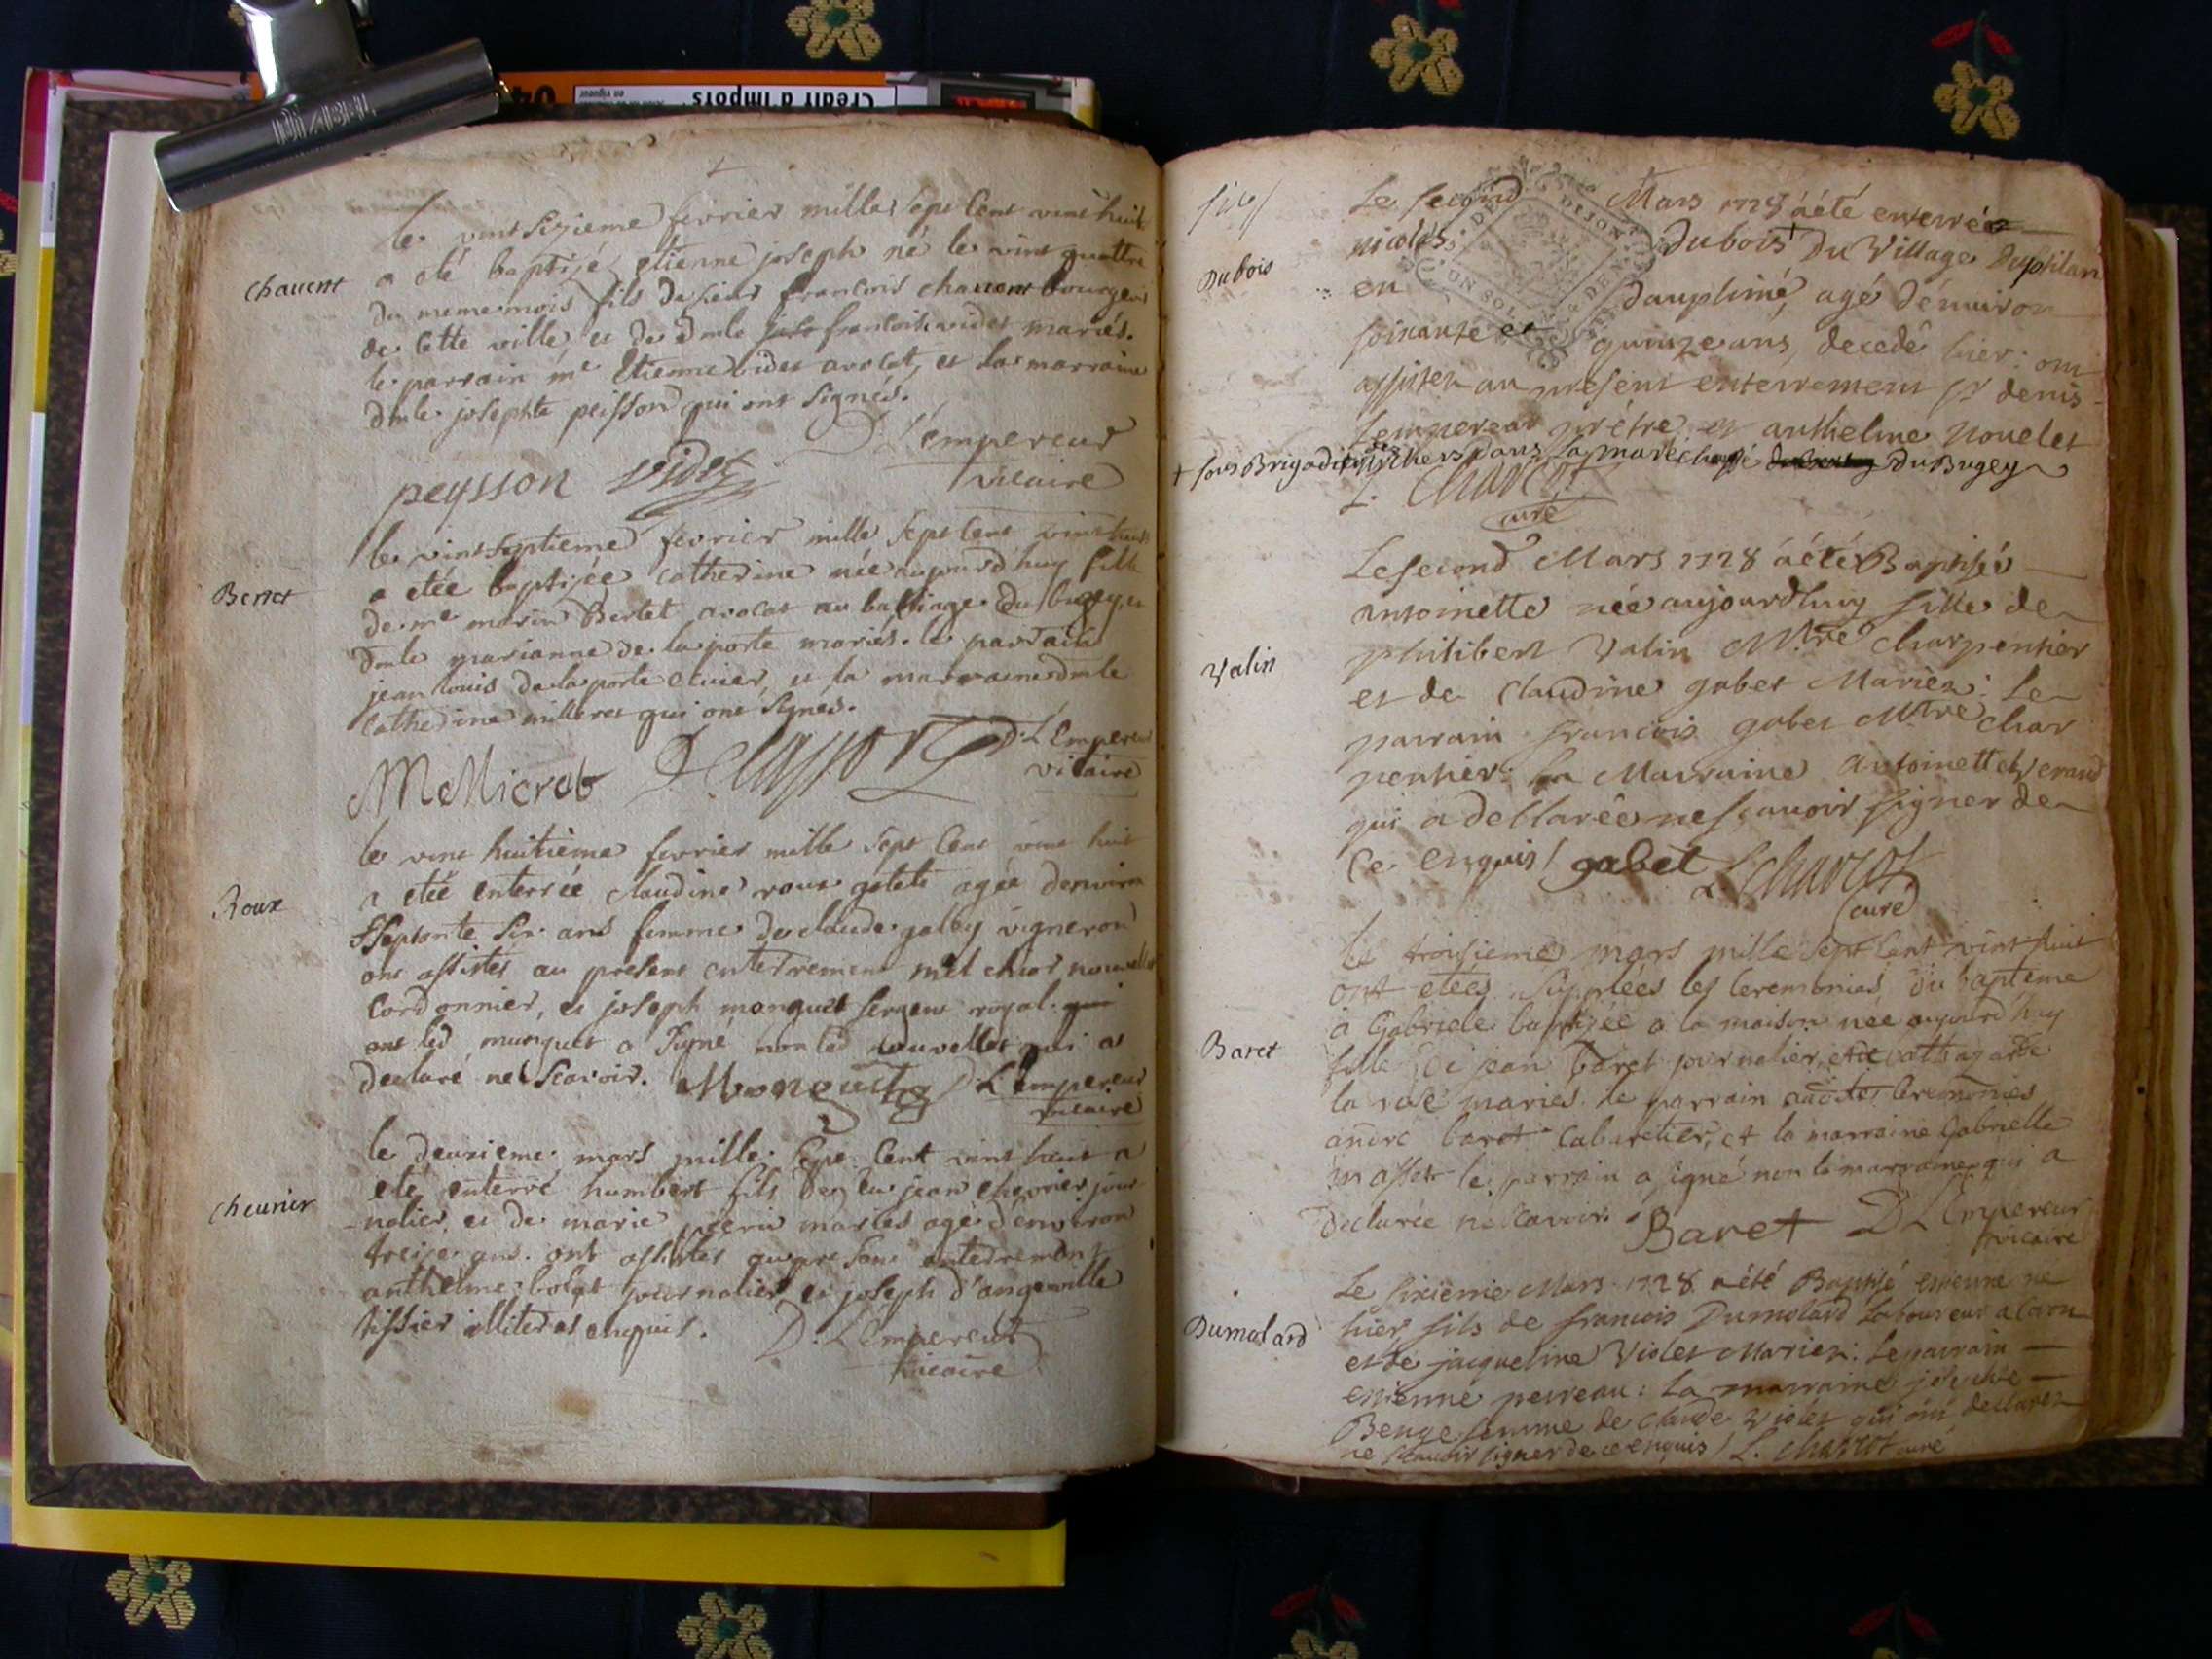 le vint sizieme fevrier mille sept cent vint huit
chavent
a eté baptizé etienne joseph né le vint quattre
du meme mois fils de sieur francois chavent bourgeois
de cette ville et de dmle françoise videt mariés.
le parrain me Etienne videt avocat, et la marraine
dmle josephte peisson qui ont signés.
D. L'empereur
peysson videt vicaire
le vint septieme fevrier mille sept cent vint huit
Bertet
a etée baptizée catherine née aujourd'huy fille
de me marin Bertet avocat au balliage du bugey, et
dmle marianne de la porte mariés. le parrain
jean louis de la porte ecuier, et la marraine dmle
catherine milleret qui ont signés.
D. L'Empereur
vicaire
le vint huitième fevrier mille sept cent vint huit
Roux
a etée enterrée claudine roux agée denviron
septante six ans femme de claude galby vigneron
ont assistés au present enterrement melchior nouvellet
cordonnier, et joseph manquet sergent royal. qui
ont led manquet a signé non led nouvellet qui a
declaré ne scavoir. D. L'empereur
vicaire
le deuxieme mars mille sept cent vint huit a
chevrier
eté enterré humbert fils de feu jean chevrier jour
nalier et de marie mariés agé d'environ
treize ans. ont assistés au present enterrement
anthelme journalier et joseph d'angeville
tissier illiteres enquis. D. L'Empereur
vicaire
six
Le second Mars 1728 a été enterrée
Dubois
nicolas dubois + du Village
en dauphiné, agé d'environ
soixante et quinze ans, decedé hier: ont
assistez au present enterrement Sr denis
Lempereur prêtre et anthelme nouelet
+ sous Brigadier dans la marechaussé du Bugey
L. Charcot
curé
Le second Mars 1728 a été Baptisée
antoinette née aujourdhuy fille de
Valin
philibert Valin Mtre charpentier
et de claudine gabet Mariez: Le
parrain francois gabet Mtre char
pentier: la Marraine antoinette
qui a declarée ne sçavoir signer de
ce enquis / gabet L. Charcot
curé
le troisieme mars mille sept cent vint huit
ont etées supplées les ceremonies du bapteme
Baret
à Gabriele baptizée a la maison née aujourd'huy
fille de jean baret journalier, et de
la rose mariés. le parrain auxdites ceremonies
andré baret cabaretier, et la marraine Gabrielle
masset le parrain a signé non la marraine qui a
declarée ne scavoir. Baret D. L'Empereur
vicaire
Le sixieme Mars 1728 a été Baptisé estienne né
Dumolard
hier, fils de francois Dumolard Laboureur a
et de jacqueline Violet Mariez: Le parrain
estienne perreau: La marraine josephte
Benge femme de claude Violet qui ont declarez
ne scavoir signer de ce enquis / L. Charcot curé
DIJON
UN SOL
Crédit d'impôts